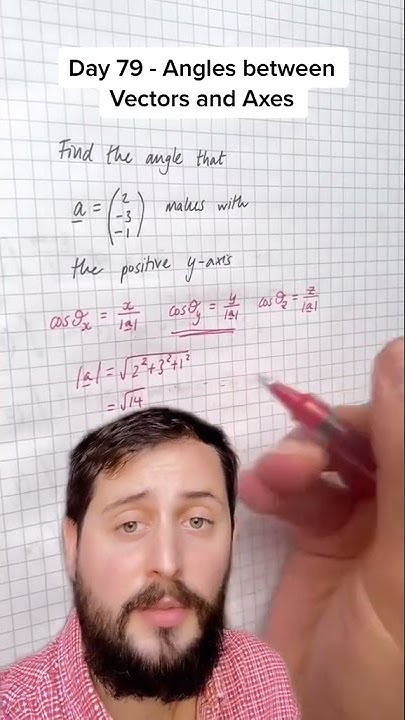 Day 79 - Angles between
Vectors and Axes
Find the angle that
a = (2 -3 -1) makes with
the positive y-axis
cosθx = x/|a| cosθy = y/|a| cosθz = z/|a|
|a| = √2²+3²+1²
= √14